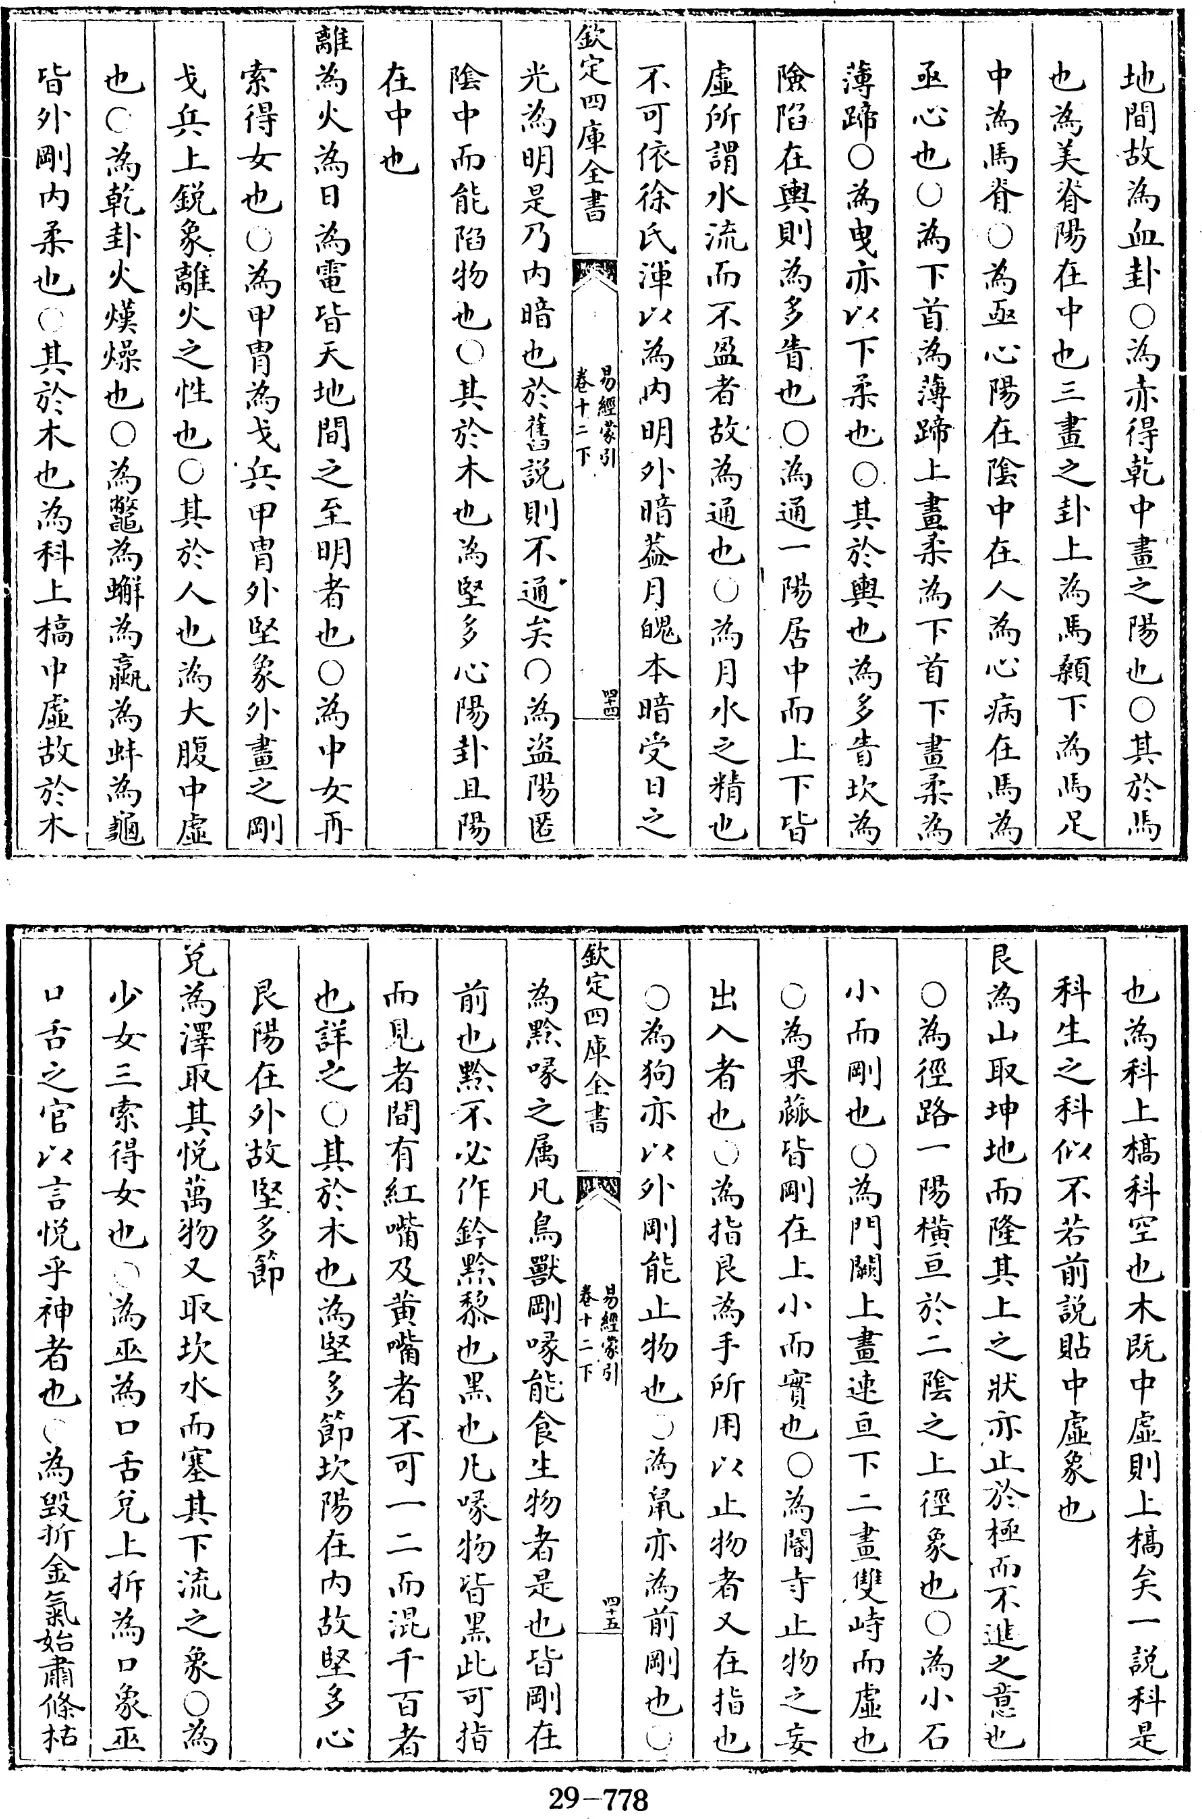 地間故為血卦○為赤得乾中畫之陽也○其於馬
也為美脊陽在中也三畫之卦上為馬顙下為馬足
中為馬脊○為亟心陽在陰中在人為心病在馬為
亟心也○為下首為薄蹄上畫柔為下首下畫柔為
薄蹄○為曳亦以下柔也○其於輿也為多眚坎為
險陷在輿則為多眚也○為通一陽居中而上下皆
虛所謂水流而不盈者故為通也○為月水之精也
不可依徐氏渾以為内明外暗葢月魄本暗受日之
欽定四庫全書
易經蒙引
卷十二下
四十四
光為明是乃内暗也於舊説則不通矣○為盜陽匿
陰中而能陷物也○其於木也為堅多心陽卦且陽
在中也
離為火為日為電皆天地間之至明者也○為中女再
索得女也○為甲胄為戈兵甲胄外堅象外畫之剛
戈兵上鋭象離火之性也○其於人也為大腹中虛
也○為乾卦火熯燥也○為鼈為蠏為蠃為蚌為龜
皆外剛内柔也○其於木也為科上槁中虛故於木
也為科上槁科空也木既中虛則上槁矣一説科是
科生之科似不若前説貼中虛象也
艮為山取坤地而隆其上之狀亦止於極而不進之意也
○為徑路一陽橫亘於二陰之上徑象也○為小石
小而剛也○為門闕上畫連亘下二畫雙峙而虛也
○為果蓏皆剛在上小而實也○為閽寺止物之妄
出入者也○為指艮為手所用以止物者又在指也
○為狗亦以外剛能止物也○為鼠亦為前剛也○
欽定四庫全書
易經蒙引
卷十二下
四十五
為黔喙之属凡鳥獸剛喙能食生物者是也皆剛在
前也黔不必作鈐黔黎也黑也凡喙物皆黑此可指
而見者間有紅嘴及黄嘴者不可一二而混千百者
也詳之○其於木也為堅多節坎陽在内故堅多心
艮陽在外故堅多節
兌為澤取其悦萬物又取坎水而塞其下流之象○為
少女三索得女也○為巫為口舌兌上拆為口象巫
口舌之官以言悦乎神者也○為毀折金氣始肅條枯
29-778